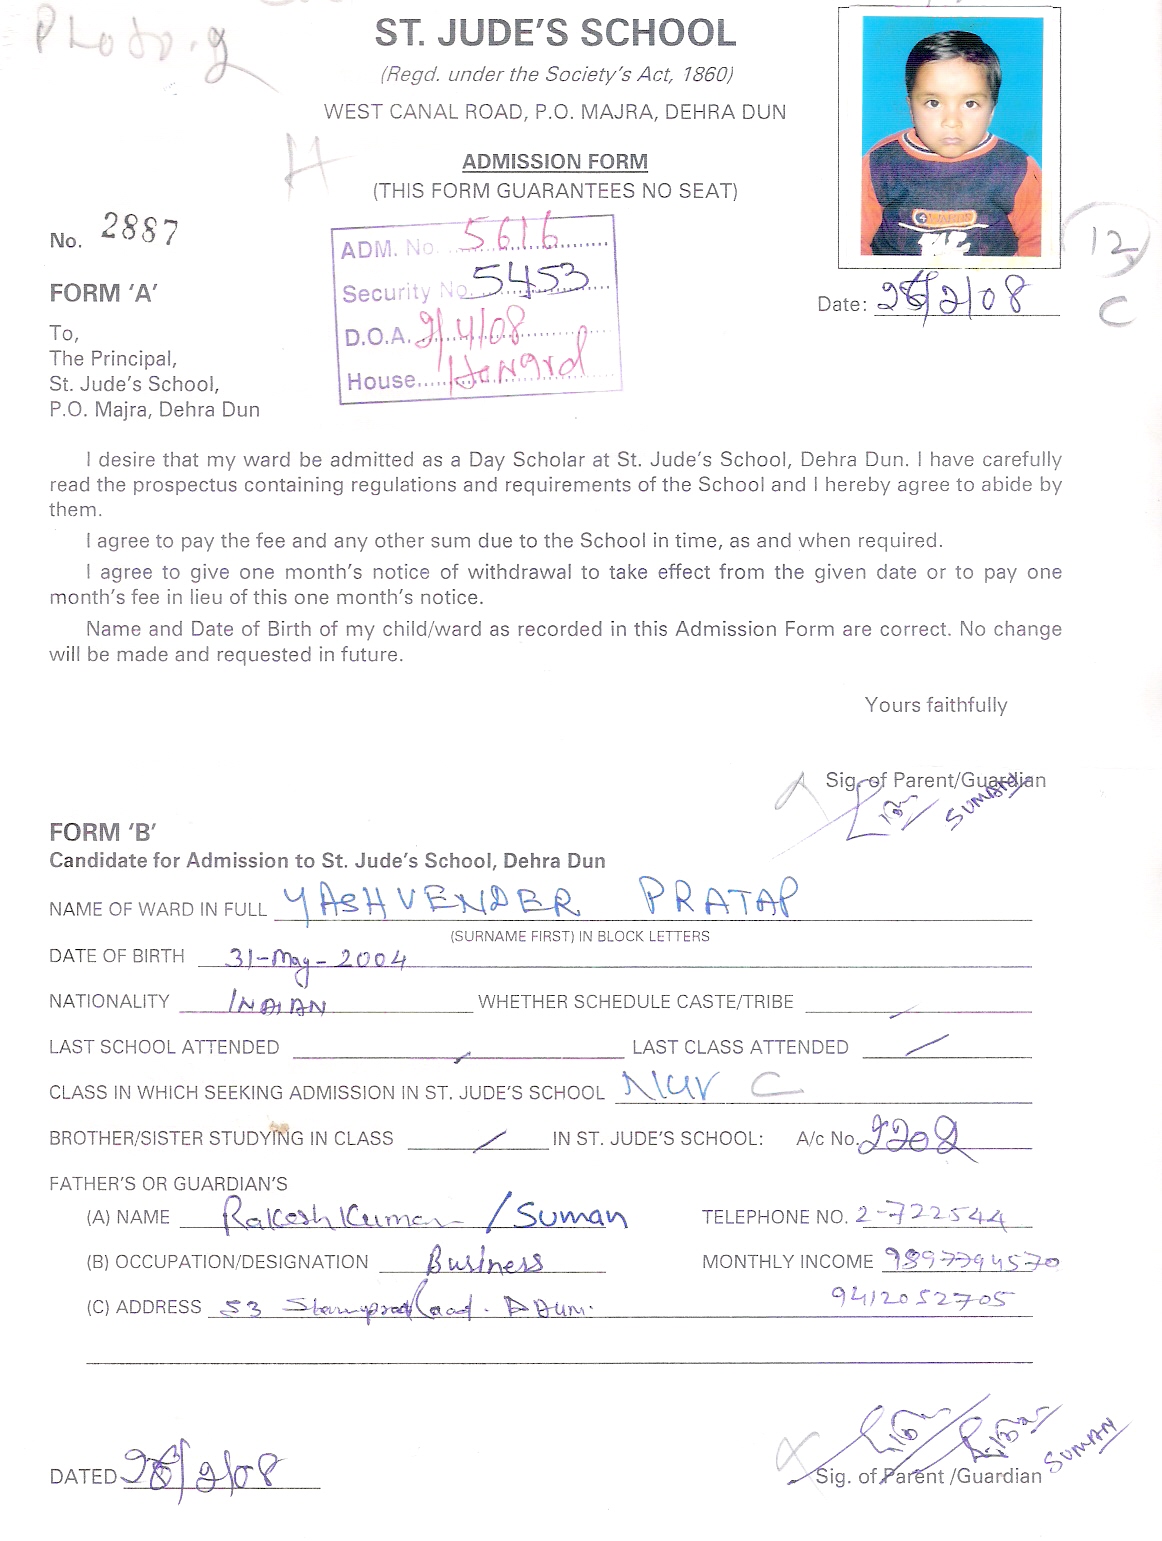 Photo.g
ST. JUDE'S SCHOOL
(Regd. under the Society's Act, 1860)
WEST CANAL ROAD, P.O. MAJRA, DEHRA DUN
H
ADMISSION FORM
(THIS FORM GUARANTEES NO SEAT)
No. 2887
ADM. No. 5616
Security No. 5453
D.O.A. 2/4/08
House
12
C
Date: /2/08
FORM 'A'
To,
The Principal,
St. Jude's School,
P.O. Majra, Dehra Dun
I desire that my ward be admitted as a Day Scholar at St. Jude's School, Dehra Dun. I have carefully
read the prospectus containing regulations and requirements of the School and I hereby agree to abide by
them.
I agree to pay the fee and any other sum due to the School in time, as and when required.
I agree to give one month's notice of withdrawal to take effect from the given date or to pay one
month's fee in lieu of this one month's notice.
Name and Date of Birth of my child/ward as recorded in this Admission Form are correct. No change
will be made and requested in future.
Yours faithfully
Sig. of Parent/Guardian
SUMAN
FORM 'B'
Candidate for Admission to St. Jude's School, Dehra Dun
NAME OF WARD IN FULL YASHVENDER PRATAP
(SURNAME FIRST) IN BLOCK LETTERS
DATE OF BIRTH 31-May-2004
NATIONALITY INDIAN WHETHER SCHEDULE CASTE/TRIBE
LAST SCHOOL ATTENDED LAST CLASS ATTENDED /
CLASS IN WHICH SEEKING ADMISSION IN ST. JUDE'S SCHOOL NUR C
BROTHER/SISTER STUDYING IN CLASS / IN ST. JUDE'S SCHOOL: A/c No. 2202
FATHER'S OR GUARDIAN'S
(A) NAME Rakesh Kumar /Suman TELEPHONE NO. 2-722544
(B) OCCUPATION/DESIGNATION Business MONTHLY INCOME 9897794570
(C) ADDRESS 53 Road. D Dun. 9412052705
DATED /2/08
Sig. of Parent /Guardian
SUMAN